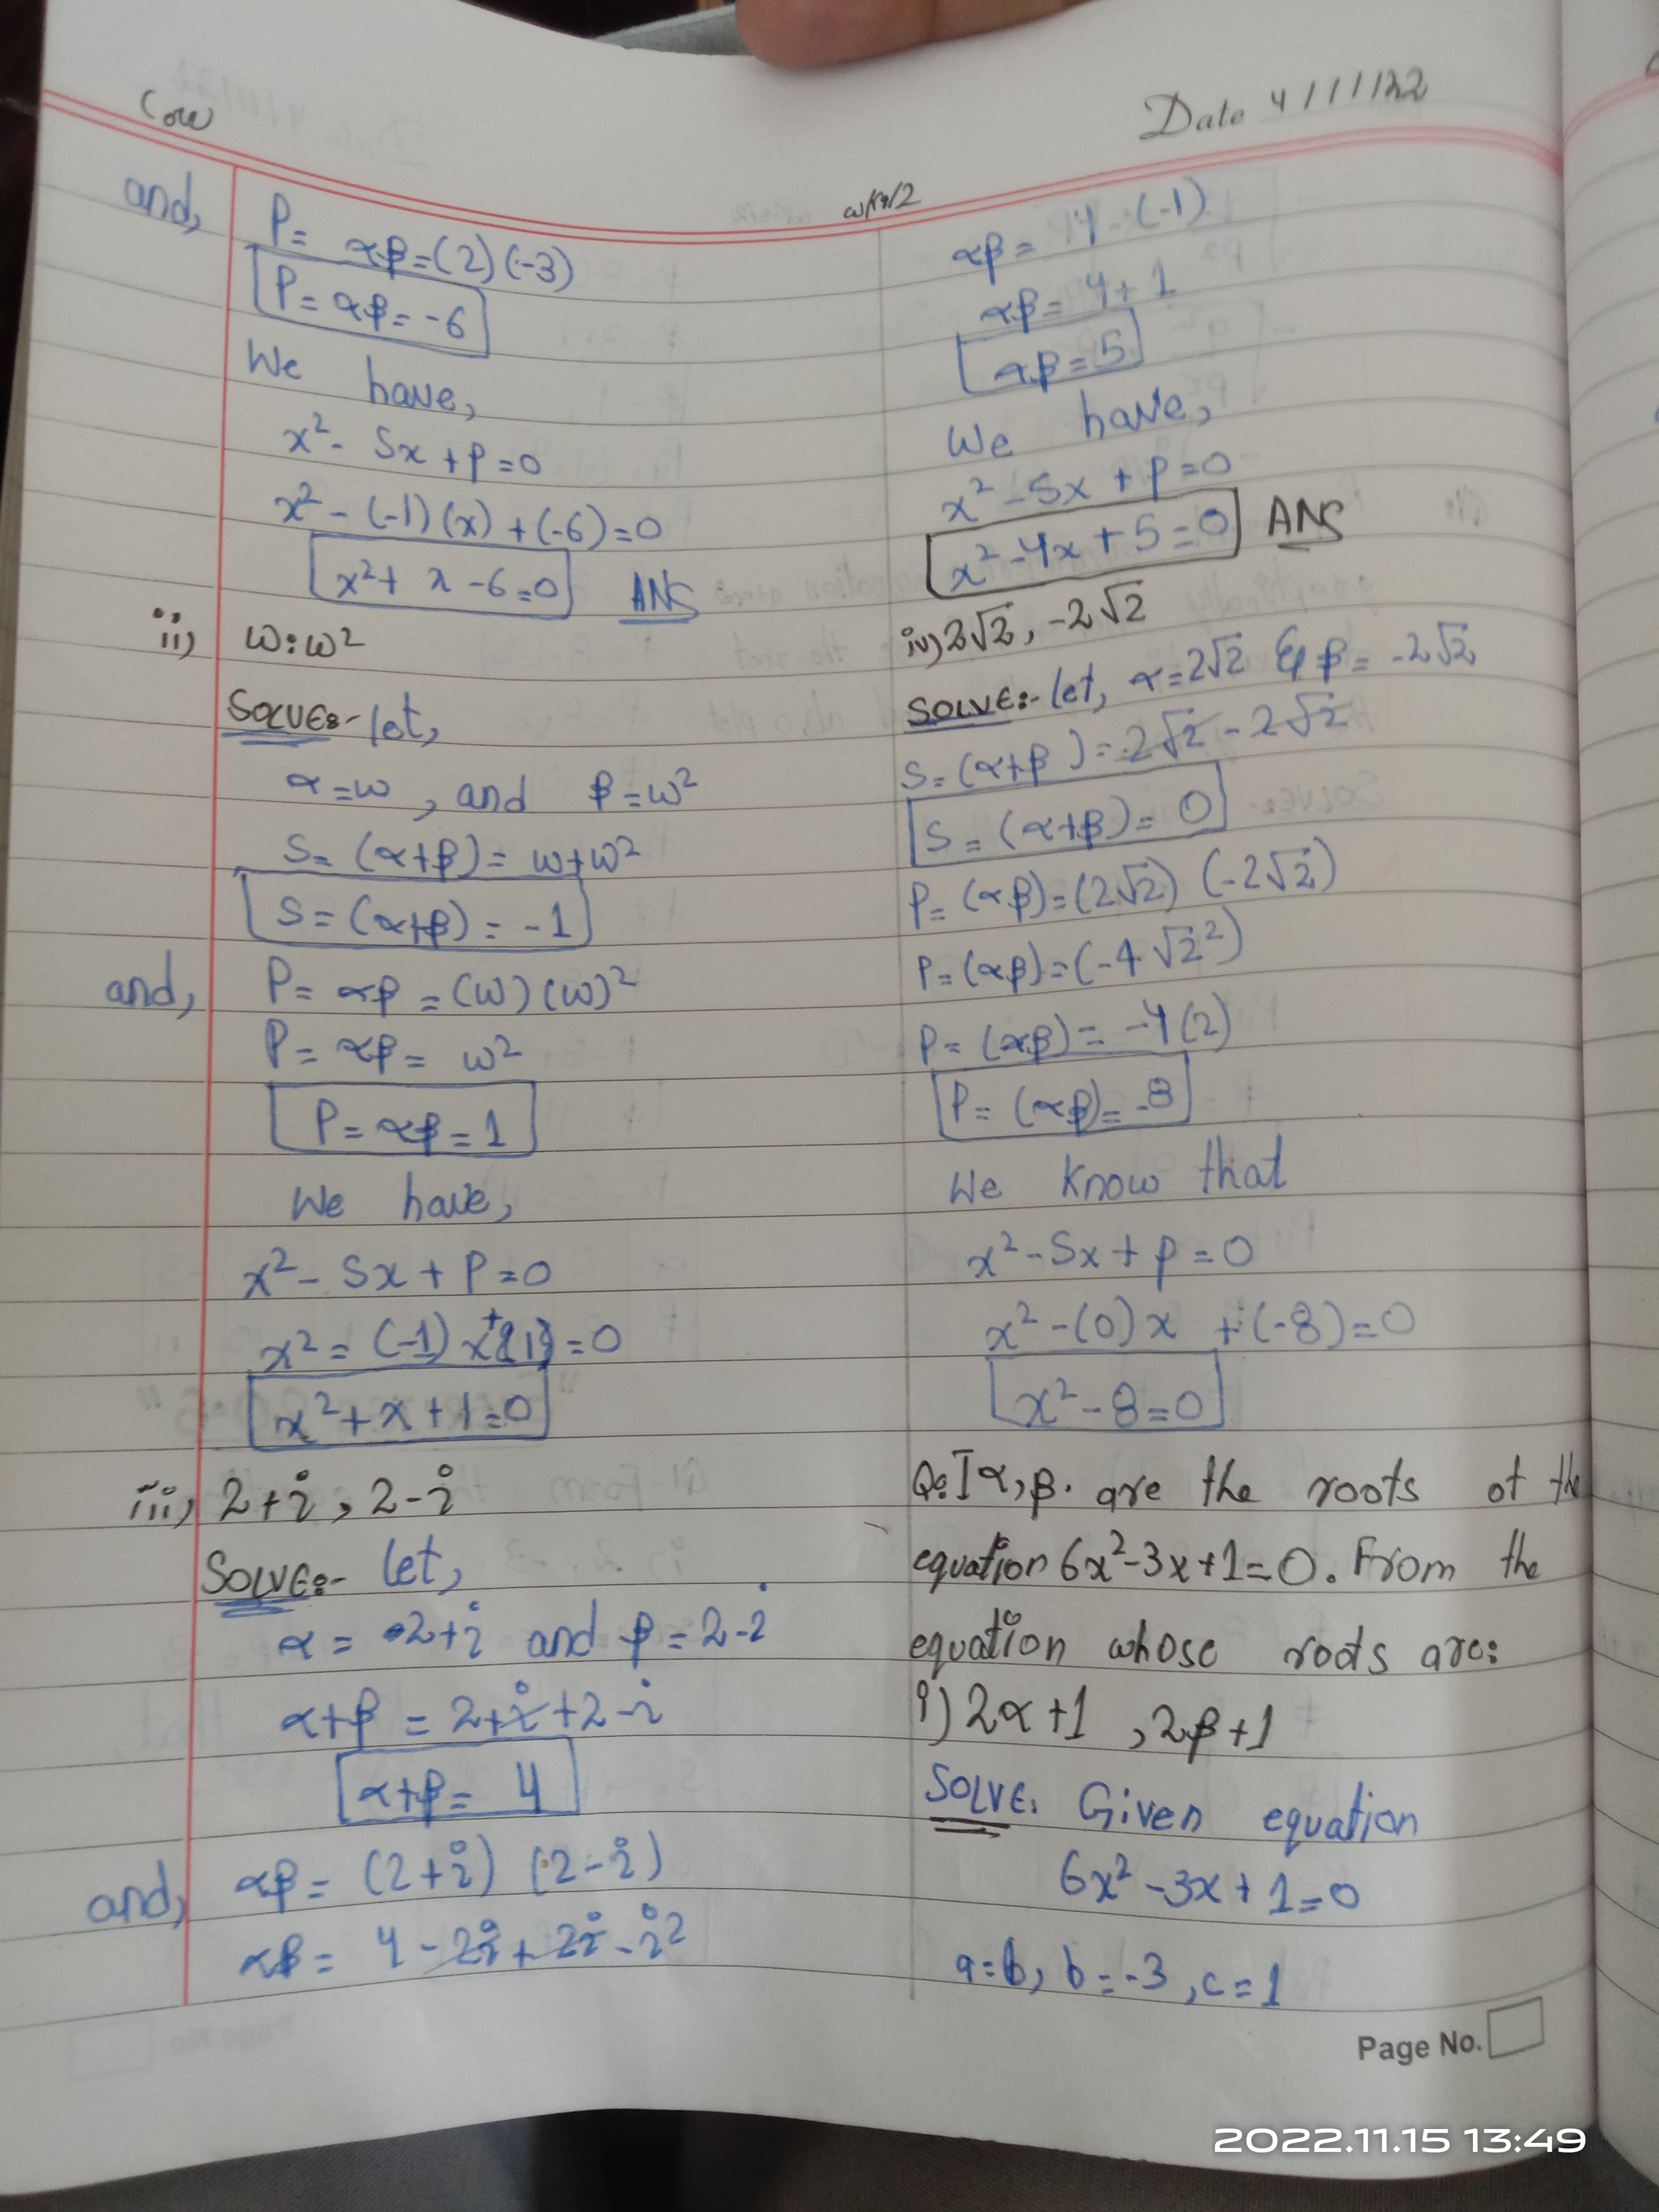 Date 4/11/22
and,
P = αβ = (2)(-3)
P = αβ = -6
We have,
x² - Sx + P = 0
x² - (-1)(x) + (-6) = 0
x² + x - 6 = 0 ANS
ii) ω : ω²
SOLVE:- let,
α = ω , and β = ω²
S = (α+β) = ω+ω²
S = (α+β) = -1
and, P = αβ = (ω)(ω)²
P = αβ = ω²
P = αβ = 1
We have,
x² - Sx + P = 0
x² = (-1) x + (1) = 0
x² + x + 1 = 0
iii) 2+i , 2-i
SOLVE:- let,
α = 2+i and β = 2-i
α+β = 2+i+2-i
α+β = 4
and, αβ = (2+i) (2-i)
αβ = 4 - 2i + 2i - i²
αβ = 4 - (-1)
αβ = 4+1
αβ = 5
We have,
x² - Sx + P = 0
x² - 4x + 5 = 0 ANS
iv) 2√2, -2√2
SOLVE:- let, α = 2√2 & β = -2√2
S = (α+β) = 2√2 - 2√2
S = (α+β) = 0
P = (αβ) = (2√2) (-2√2)
P = (αβ) = (-4√2²)
P = (αβ) = -4(2)
P = (αβ) = -8
We know that
x² - Sx + P = 0
x² - (0)x + (-8) = 0
x² - 8 = 0
Q: I α, β. are the roots of the
equation 6x²-3x+1=0. From the
equation whose roots are:
i) 2α+1 , 2β+1
SOLVE: Given equation
6x² - 3x + 1 = 0
a = 6, b = -3 , c = 1
Page No.
2022.11.15 13:49